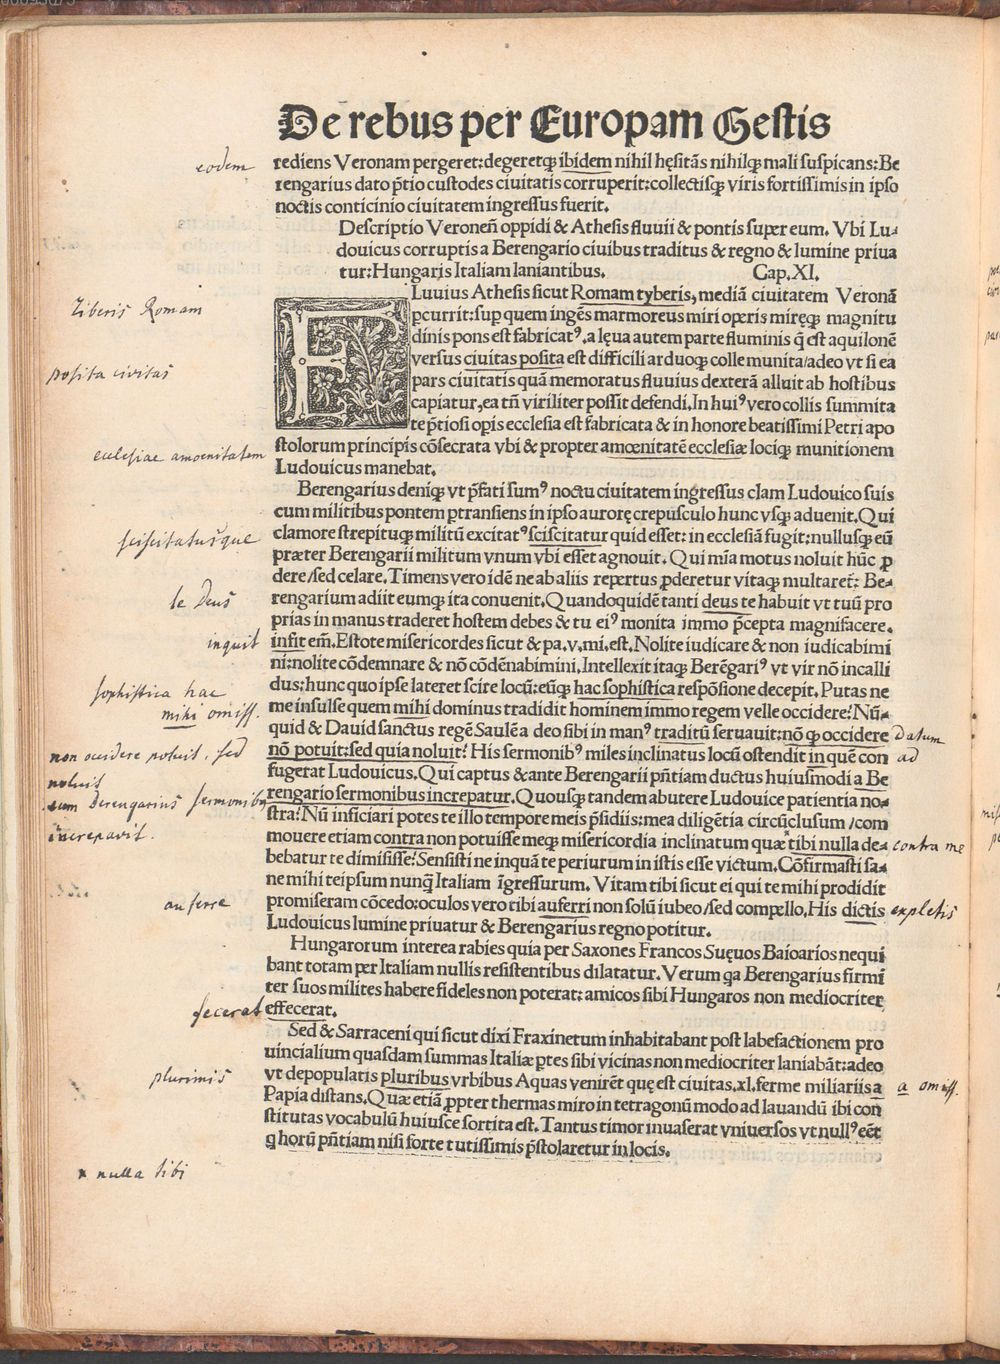 De rebus per Europam Gestis
eodem
rediens Veronam pergeret:degeretqꝫ ibidem nihil hęsitãs nihilqꝫ mali suspicans:Be
rengarius dato p̃tio custodes ciuitatis corruperit:collectisqꝫ viris fortissimis in ipso
noctis conticinio ciuitatem ingressus fuerit.
Descriptio Veroneñ oppidi & Athesis fluuii & pontis super eum. Vbi Lu-
douicus corruptis a Berengario ciuibus traditus & regno & lumine priua
tur:Hungaris Italiam laniantibus. Cap.XI.
FLuuius Athesis sicut Romam tyberis, mediã ciuitatem Veronã
Tiberis Romam
ꝑcurrit:suꝑ quem ingẽs marmoreus miri operis miręqꝫ magnitu
dinis pons est fabricatꝰ.a lęua autem parte fluminis q̃ est aquilonẽ
versus ciuitas posita est difficili arduoqꝫ colle munita/adeo vt si ea
posita civitas
pars ciuitatis quã memoratus fluuius dexterã alluit ab hostibus
capiatur,ea tñ viriliter possit defendi.In huiꝰ vero collis summita
te p̃tiosi oꝑis ecclesia est fabricata & in honore beatissimi Petri apo
stolorum principis cõsecrata vbi & propter amœnitatẽ ecclesiæ lociqꝫ munitionem
ecclesiae amoenitatem
Ludouicus manebat.
Berengarius deniqꝫ vt p̃fati sumꝰ noctu ciuitatem ingressus clam Ludouico suis
cum militibus pontem ꝑtransiens in ipso aurorę crepusculo hunc vsqꝫ aduenit.Qui
clamore strepituqꝫ militũ excitatꝰ sciscitatur quid esset: in ecclesiã fugit:nullusqꝫ eũ
sciscitatusque
præter Berengarii militum vnum vbi esset agnouit. Qui mĩa motus noluit hũc ꝓ
dere/sed celare.Timens vero idẽ ne ab aliis repertus ꝓderetur vitaqꝫ multaret̃: Be-
rengarium adiit eumqꝫ ita conuenit.Quandoquidẽ tanti deus te habuit vt tuũ pro
te Deus
prias in manus traderet hostem debes & tu eiꝰ monita immo p̃cepta magnifacere.
infit em̃.Estote misericordes sicut & pa.v.mi.est.Nolite iudicare & non iudicabimi
inquit
ni:nolite cõdemnare & nõ cõdẽnabimini.Intellexit itaqꝫ Berẽgariꝰ vt vir nõ incalli
dus:hunc quo ipse lateret scire locũ:eũqꝫ hac sophistica respõsione decepit. Putas ne
sophistica hac
me insulse quem mihi dominus tradidit hominem immo regem velle occidere? Nũ-
mihi omiss.
quid & Dauid sanctus regẽ Saulẽ a deo sibi in manꝰ traditũ seruauit:nõ ꝙ occidere
datum
nõ potuit:sed quia noluit? His sermonibꝰ miles inclinatus locũ ostendit in quẽ con
ad
non occidere potuit, sed
noluit
fugerat Ludouicus.Qui captus & ante Berengarii p̃ñtiam ductus huiusmodi a Be
rengario sermonibus increpatur.Quousqꝫ tandem abutere Ludouice patientia no-
eum Berengarius sermonibus
increpavit.
stra? Nũ inficiari potes te illo tempore meis p̃sidiis:mea diligẽtia circũclusum/com
mouere etiam contra non potuisse meqꝫ misericordia inclinatum quæ tibi nulla de-
contra me
bebatur te dimisisse? Sensisti ne inquã te periurum in istis esse victum. Cõfirmasti sa-
ne mihi teipsum nunq̃ Italiam ĩgressurum. Vitam tibi sicut ei qui te mihi prodidit
promiseram cõcedo:oculos vero tibi auferri non solũ iubeo/sed compello.His dictis
auferre
expletis
Ludouicus lumine priuatur & Berengarius regno potitur.
Hungarorum interea rabies quia per Saxones Francos Suęuos Baioarios nequi
bant totam per Italiam nullis resistentibus dilatatur. Verum qa Berengarius firmi
ter suos milites habere fideles non poterat: amicos sibi Hungaros non mediocriter
effecerat.
fecerat
Sed & Sarraceni qui sicut dixi Fraxinetum inhabitabant post labefactionem pro
uincialium quasdam summas Italiæ ꝑtes sibi vicinas non mediocriter laniabãt:adeo
vt depopulatis pluribus vrbibus Aquas venirẽt quę est ciuitas.xl.ferme miliariis a
plurimis
a omiss.
Papia distans.Quæ etiã ꝓpter thermas miro in tetragonũ modo ad lauandũ ibi con
stitutas vocabulũ huiusce sortita est. Tantus timor inuaserat vniuersos vt nullꝰ eẽt
q horũ p̃ñtiam nisi forte tutissimis p̃stolaretur in locis.
x nulla tibi